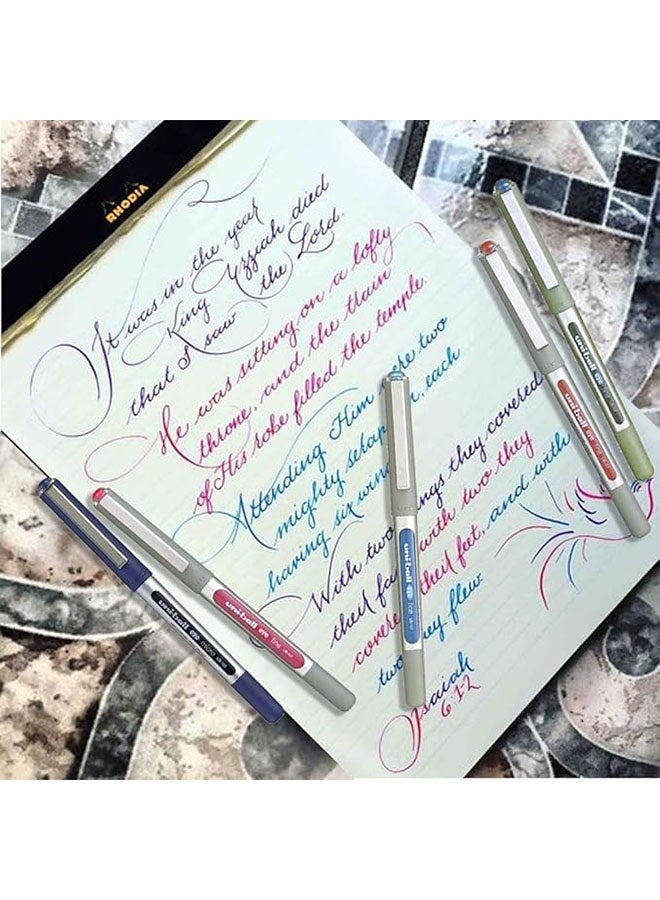 RHODIA
It was in the year
King Uzziah died
that I saw the Lord.
He was sitting on a lofty
throne, and the train
of His robe filled the temple.
Attending Him ere two
mighty each
having six win
With two ngs they covered
their fa with two they
covere their feet, and with
two hey flew.
Isaiah
6:1:2
uni-ball eye micro
uni-ball eye fine
uni-ball eye fine
uni-ball eye
uni-ball eye